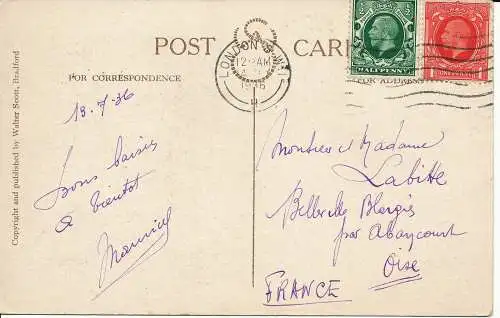 POST CARD
FOR CORRESPONDENCE
FOR ADDRESS
LONDON S.W.1
12 AM
1936
HALFPENNY
Copyright and published by Walter Scott, Bradford
13.7.36
Bons baisers
A bientôt
Maurice
Monsieur et Madame
Labitte
par Abancourt
Oise
FRANCE